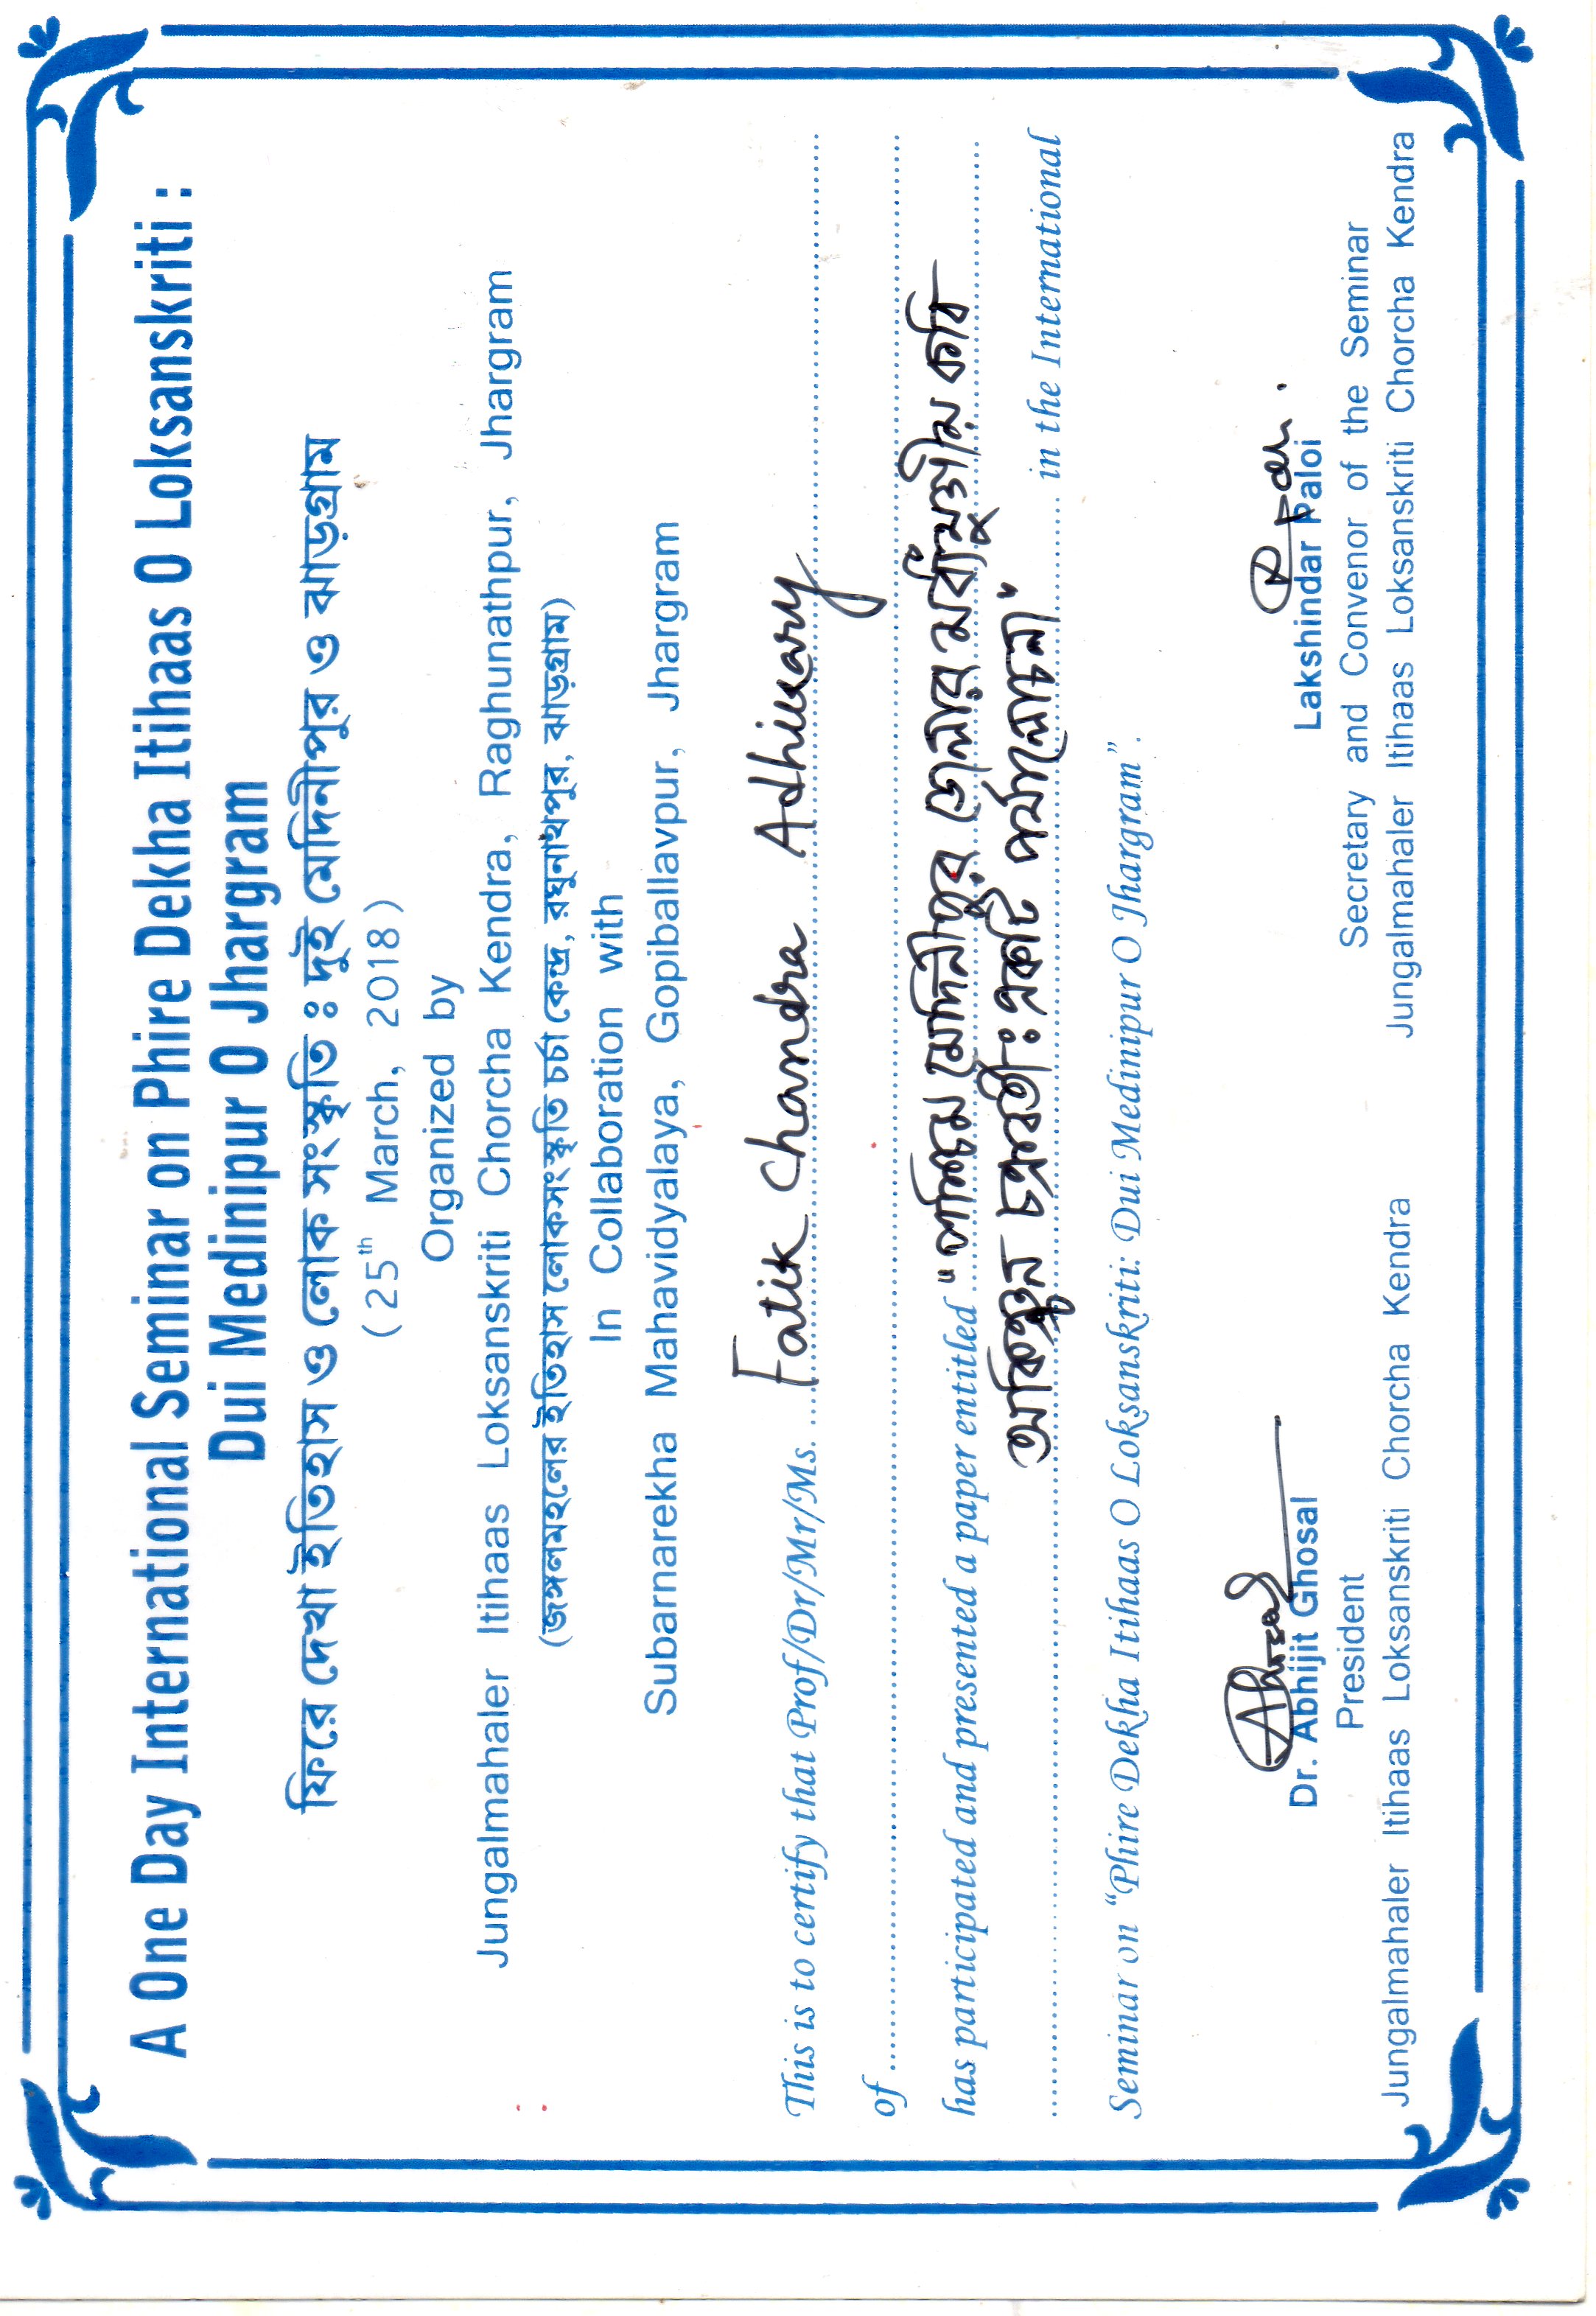 A One Day International Seminar on Phire Dekha Itihaas O Loksanskriti :
Dui Medinipur O Jhargram
ফিরে দেখা ইতিহাস ও লোক সংস্কৃতি ঃ দুই মেদিনীপুর ও ঝাড়গ্রাম
( 25th March, 2018 )
Organized by
Jungalmahaler Itihaas Loksanskriti Chorcha Kendra, Raghunathpur, Jhargram
(জঙ্গলমহলের ইতিহাস লোকসংস্কৃতি চর্চা কেন্দ্র, রঘুনাথপুর, ঝাড়গ্রাম)
In Collaboration with
Subarnarekha Mahavidyalaya, Gopiballavpur, Jhargram
This is to certify that Prof/Dr/Mr/Ms. Fatik Chandra Adhikary
of
has participated and presented a paper entitled "পশ্চিম মেদিনীপুর জেলার মধ্যযুগীয়
: একটি পর্যালোচনা" in the International
Seminar on "Phire Dekha Itihaas O Loksanskriti: Dui Medinipur O Jhargram".
Dr. Abhijit Ghosal
President
Jungalmahaler Itihaas Loksanskriti Chorcha Kendra
Lakshindar Paloi
Secretary and Convenor of the Seminar
Jungalmahaler Itihaas Loksanskriti Chorcha Kendra